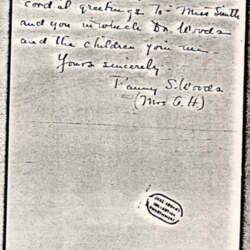 cordial greetings to Miss Smith
and you in which Dr. Woods
and the children join me.
Yours sincerely
Fanny S. Woods
(Mrs A. H.)
JANE ADDAMS